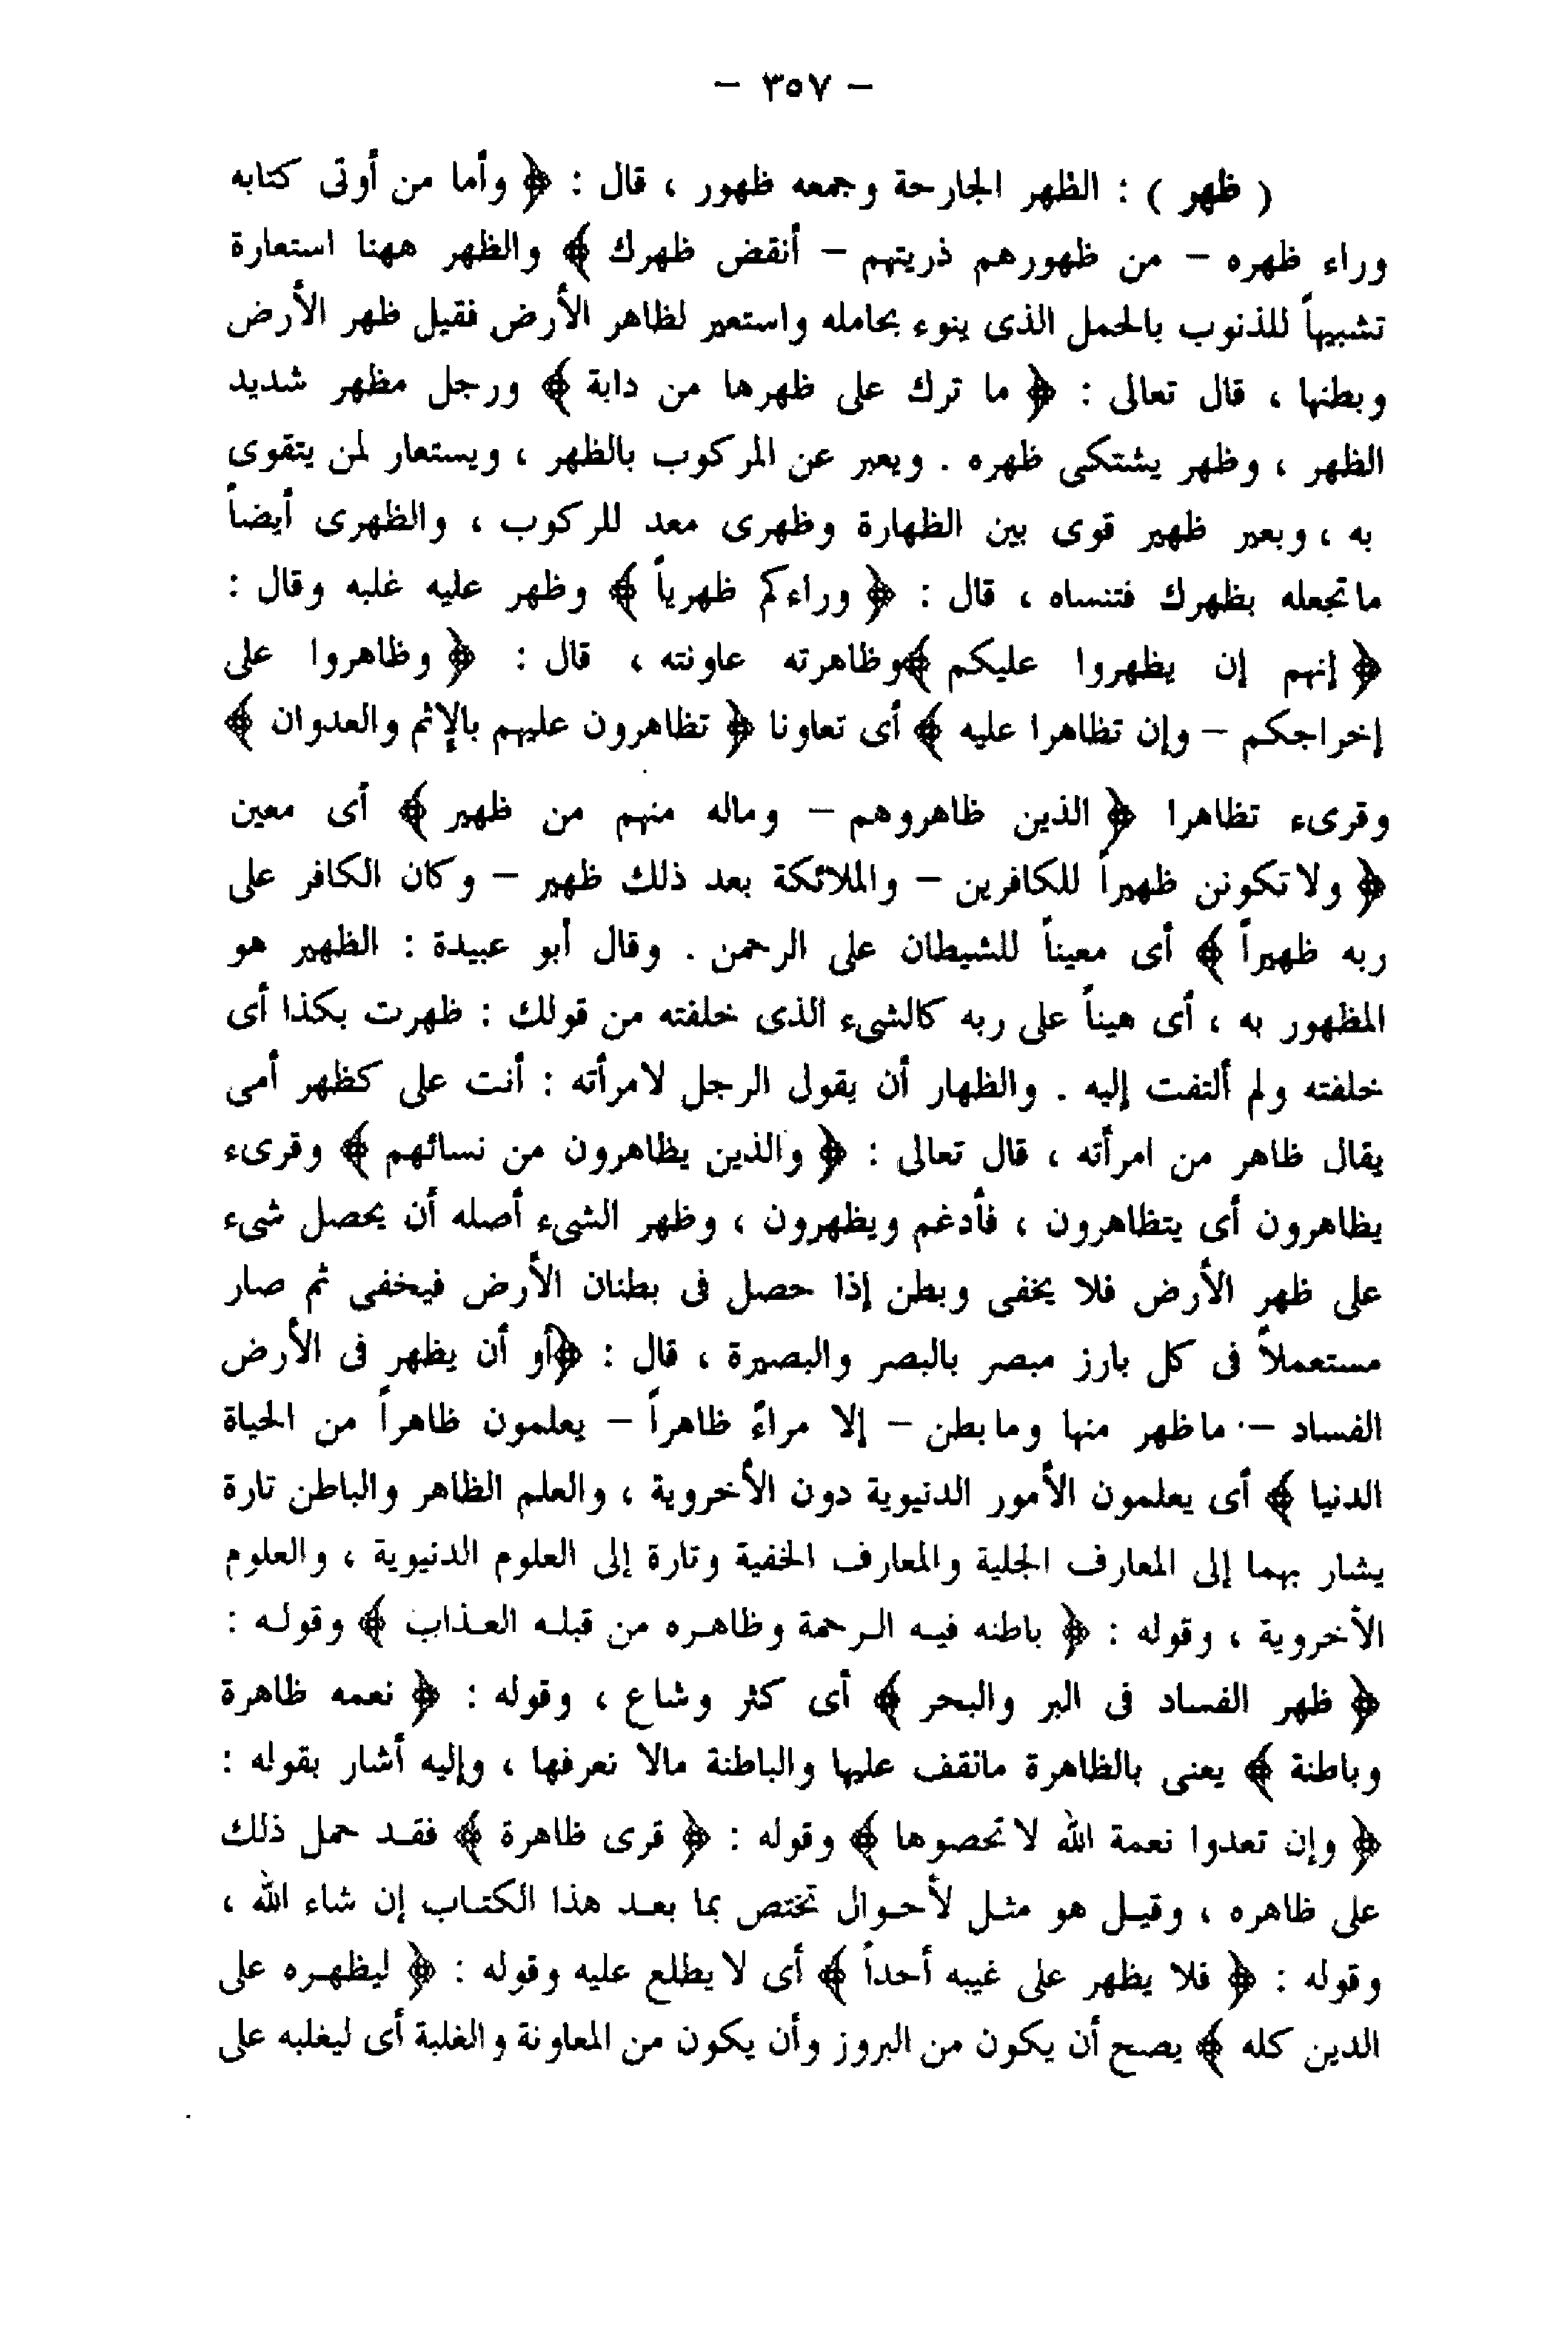 — ٣٥٧ —
( ظهر ) : الظهر الجارحة وجمعه ظهور ، قال : ﴿ وأما من أوتى كتابه
وراء ظهره — من ظهورهم ذريتهم — أنقض ظهرك ﴾ والظهر ههنا استعارة
تشبيهاً للذنوب بالحمل الذى ينوء بحامله واستعير لظاهر الأرض فقيل ظهر الأرض
وبطنها ، قال تعالى : ﴿ ما ترك على ظهرها من دابة ﴾ ورجل مظهر شديد
الظهر ، وظهر يشتكى ظهره . ويعبر عن المركوب بالظهر ، ويستعار لمن يتقوى
به ، وبعير ظهير قوى بين الظهارة وظهرى معد للركوب ، والظهرى أيضاً
ماتجعله بظهرك فتنساه ، قال : ﴿ وراءكم ظهرياً ﴾ وظهر عليه غلبه وقال :
﴿ إنهم إن يظهروا عليكم ﴾ وظاهرته عاونته ، قال : ﴿ وظاهروا على
إخراجكم — وإن تظاهرا عليه ﴾ أى تعاونا ﴿ تظاهرون عليهم بالإثم والعدوان ﴾
وقرىء تظاهرا ﴿ الذين ظاهروهم — وماله منهم من ظهير ﴾ أى معين
﴿ ولا تكونن ظهيراً للكافرين — والملائكة بعد ذلك ظهير — وكان الكافر على
ربه ظهيراً ﴾ أى معيناً للشيطان على الرحمن . وقال أبو عبيدة : الظهير هو
المظهور به ، أى هيناً على ربه كالشىء الذى خلفته من قولك : ظهرت بكذا أى
خلفته ولم ألتفت إليه . والظهار أن يقول الرجل لامرأته : أنت على كظهر أمى
يقال ظاهر من امرأته ، قال تعالى : ﴿ والذين يظاهرون من نسائهم ﴾ وقرىء
يظاهرون أى يتظاهرون ، فأدغم ويظهرون ، وظهر الشىء أصله أن يحصل شىء
على ظهر الأرض فلا يخفى وبطن إذا حصل فى بطنان الأرض فيخفى ثم صار
مستعملاً فى كل بارز مبصر بالبصر والبصيرة ، قال : ﴿ أو أن يظهر فى الأرض
الفساد — ماظهر منها ومابطن — إلا مراءً ظاهراً — يعلمون ظاهراً من الحياة
الدنيا ﴾ أى يعلمون الأمور الدنيوية دون الأخروية ، والعلم الظاهر والباطن تارة
يشار بهما إلى المعارف الجلية والمعارف الخفية وتارة إلى العلوم الدنيوية ، والعلوم
الأخروية ، وقوله : ﴿ باطنه فيه الرحمة وظاهره من قبله العذاب ﴾ وقوله :
﴿ ظهر الفساد فى البر والبحر ﴾ أى كثر وشاع ، وقوله : ﴿ نعمه ظاهرة
وباطنة ﴾ يعنى بالظاهرة مانقف عليها والباطنة مالا نعرفها ، وإليه أشار بقوله :
﴿ وإن تعدوا نعمة الله لا تحصوها ﴾ وقوله : ﴿ قرى ظاهرة ﴾ فقد حمل ذلك
على ظاهره ، وقيل هو مثل لأحوال تختص بما بعد هذا الكتاب إن شاء الله ،
وقوله : ﴿ فلا يظهر على غيبه أحداً ﴾ أى لا يطلع عليه وقوله : ﴿ ليظهره على
الدين كله ﴾ يصح أن يكون من البروز وأن يكون من المعاونة والغلبة أى ليغلبه على